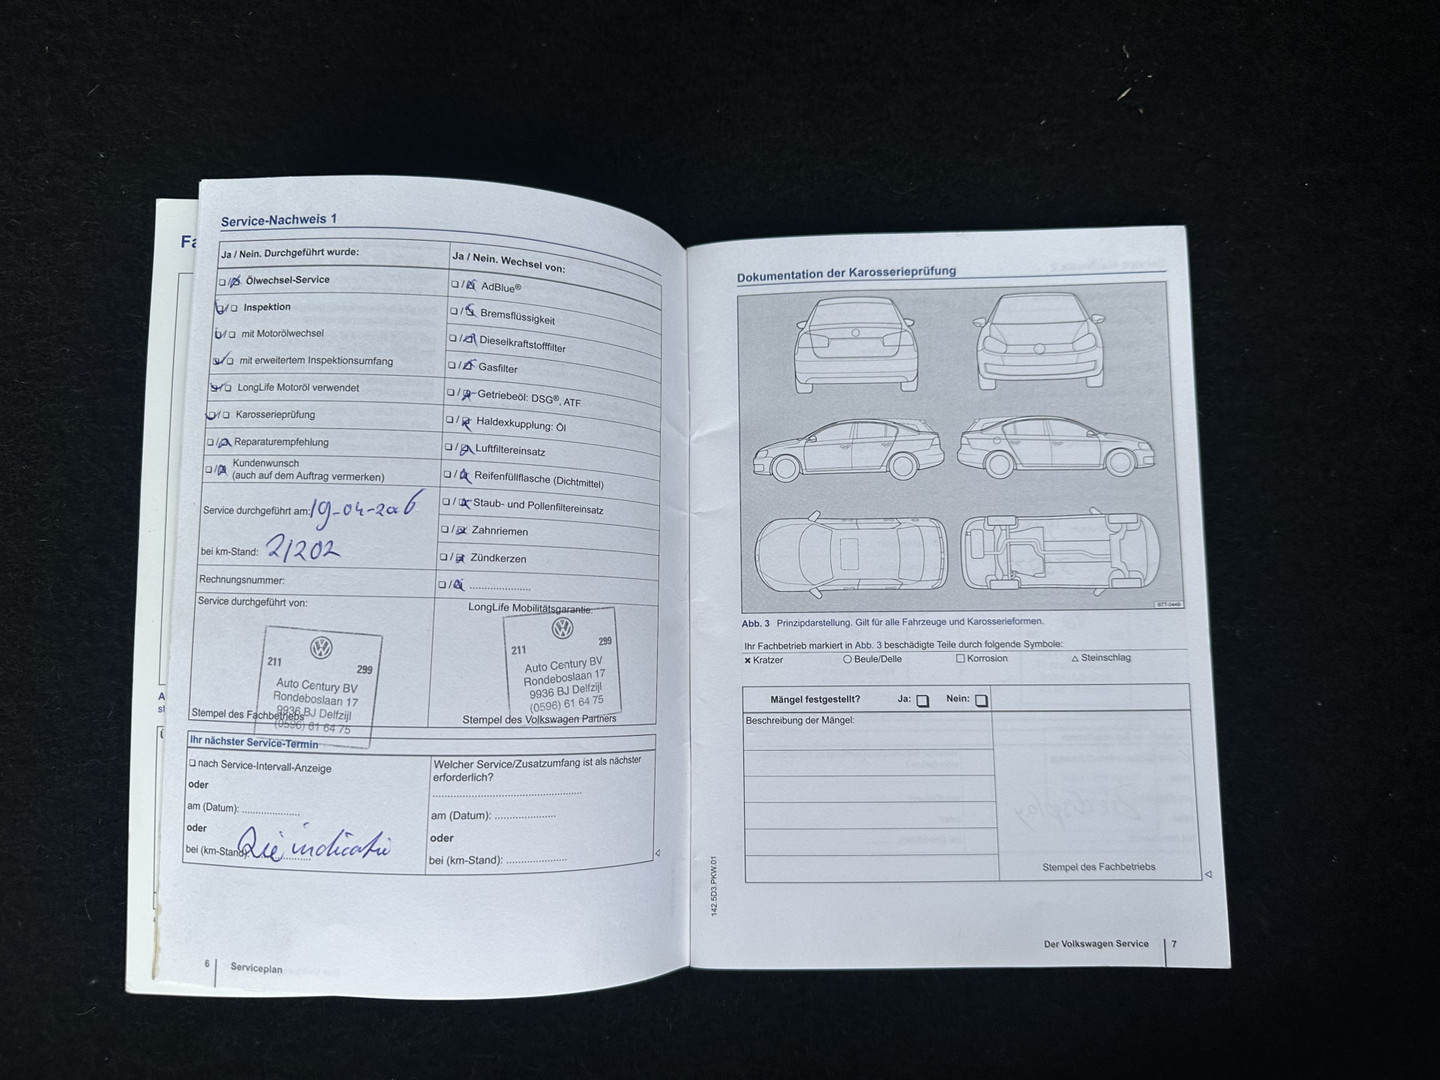 Fa
Service-Nachweis 1
Ja / Nein. Durchgeführt wurde:
Ölwechsel-Service
Inspektion
mit Motorölwechsel
mit erweitertem Inspektionsumfang
LongLife Motoröl verwendet
Karosserieprüfung
Reparaturempfehlung
Kundenwunsch
(auch auf dem Auftrag vermerken)
Service durchgeführt am: 19-04-2006
bei km-Stand: 21202
Rechnungsnummer:
Service durchgeführt von:
211
299
Auto Century BV
Rondeboslaan 17
9936 BJ Delfzijl
(0596) 61 64 75
Stempel des Fachbetriebs
Ja / Nein. Wechsel von:
AdBlue®
Bremsflüssigkeit
Dieselkraftstofffilter
Gasfilter
Getriebeöl: DSG®, ATF
Haldexkupplung: Öl
Luftfiltereinsatz
Reifenfüllflasche (Dichtmittel)
Staub- und Pollenfiltereinsatz
Zahnriemen
Zündkerzen
LongLife Mobilitätsgarantie:
211
299
Auto Century BV
Rondeboslaan 17
9936 BJ Delfzijl
(0596) 61 64 75
Stempel des Volkswagen Partners
Ihr nächster Service-Termin
nach Service-Intervall-Anzeige
oder
am (Datum):
oder
bei (km-Stand): Zie indicatie
Welcher Service/Zusatzumfang ist als nächster
erforderlich?
am (Datum):
oder
bei (km-Stand):
6 Serviceplan
Dokumentation der Karosserieprüfung
Abb. 3 Prinzipdarstellung. Gilt für alle Fahrzeuge und Karosserieformen.
Ihr Fachbetrieb markiert in Abb. 3 beschädigte Teile durch folgende Symbole:
× Kratzer ○ Beule/Delle □ Korrosion △ Steinschlag
Mängel festgestellt? Ja: Nein:
Beschreibung der Mängel:
Stempel des Fachbetriebs
142.5D3.PKW.01
Der Volkswagen Service 7